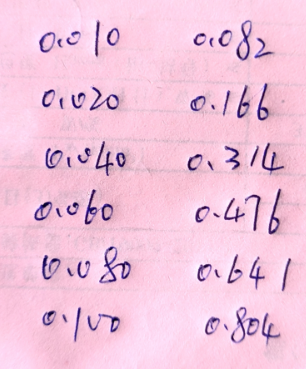 0.010 0.082
0.020 0.166
0.040 0.314
0.060 0.476
0.080 0.641
0.100 0.804